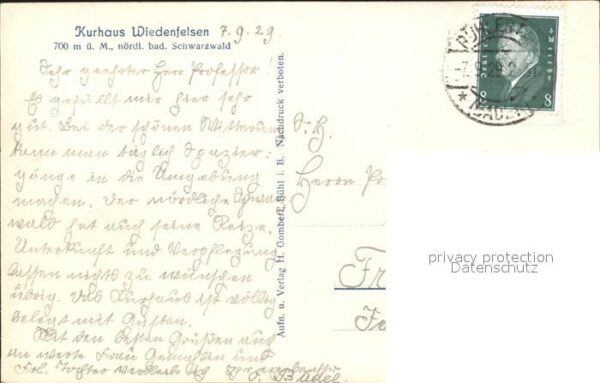 Kurhaus Wiedenfelsen 7.9.29
700 m ü. M., nördl. bad. Schwarzwald
Sehr geehrter Herr Professor
Es gefällt mir hier sehr
gut. Bei der schönen Witterung
kann man täglich Spazier-
gänge in die Umgebung
machen. Der nördliche Schwarz
wald hat auch seine Reize.
Unterkunft und Verpflegung
lassen nichts zu wünschen
übrig. Das Kurhaus ist völlig
belegt mit Gästen.
Mit den besten Grüßen auch
an werte Frau Gemahlin und
Frl. Tochter verbleibe ich Ihr ergebenster
Aufn. u. Verlag H. Gomber, Bühl i. B. Nachdruck verboten.
S. H.
Herrn
DEUTSCHES REICH
8 8
BADEN
privacy protection
Datenschutz